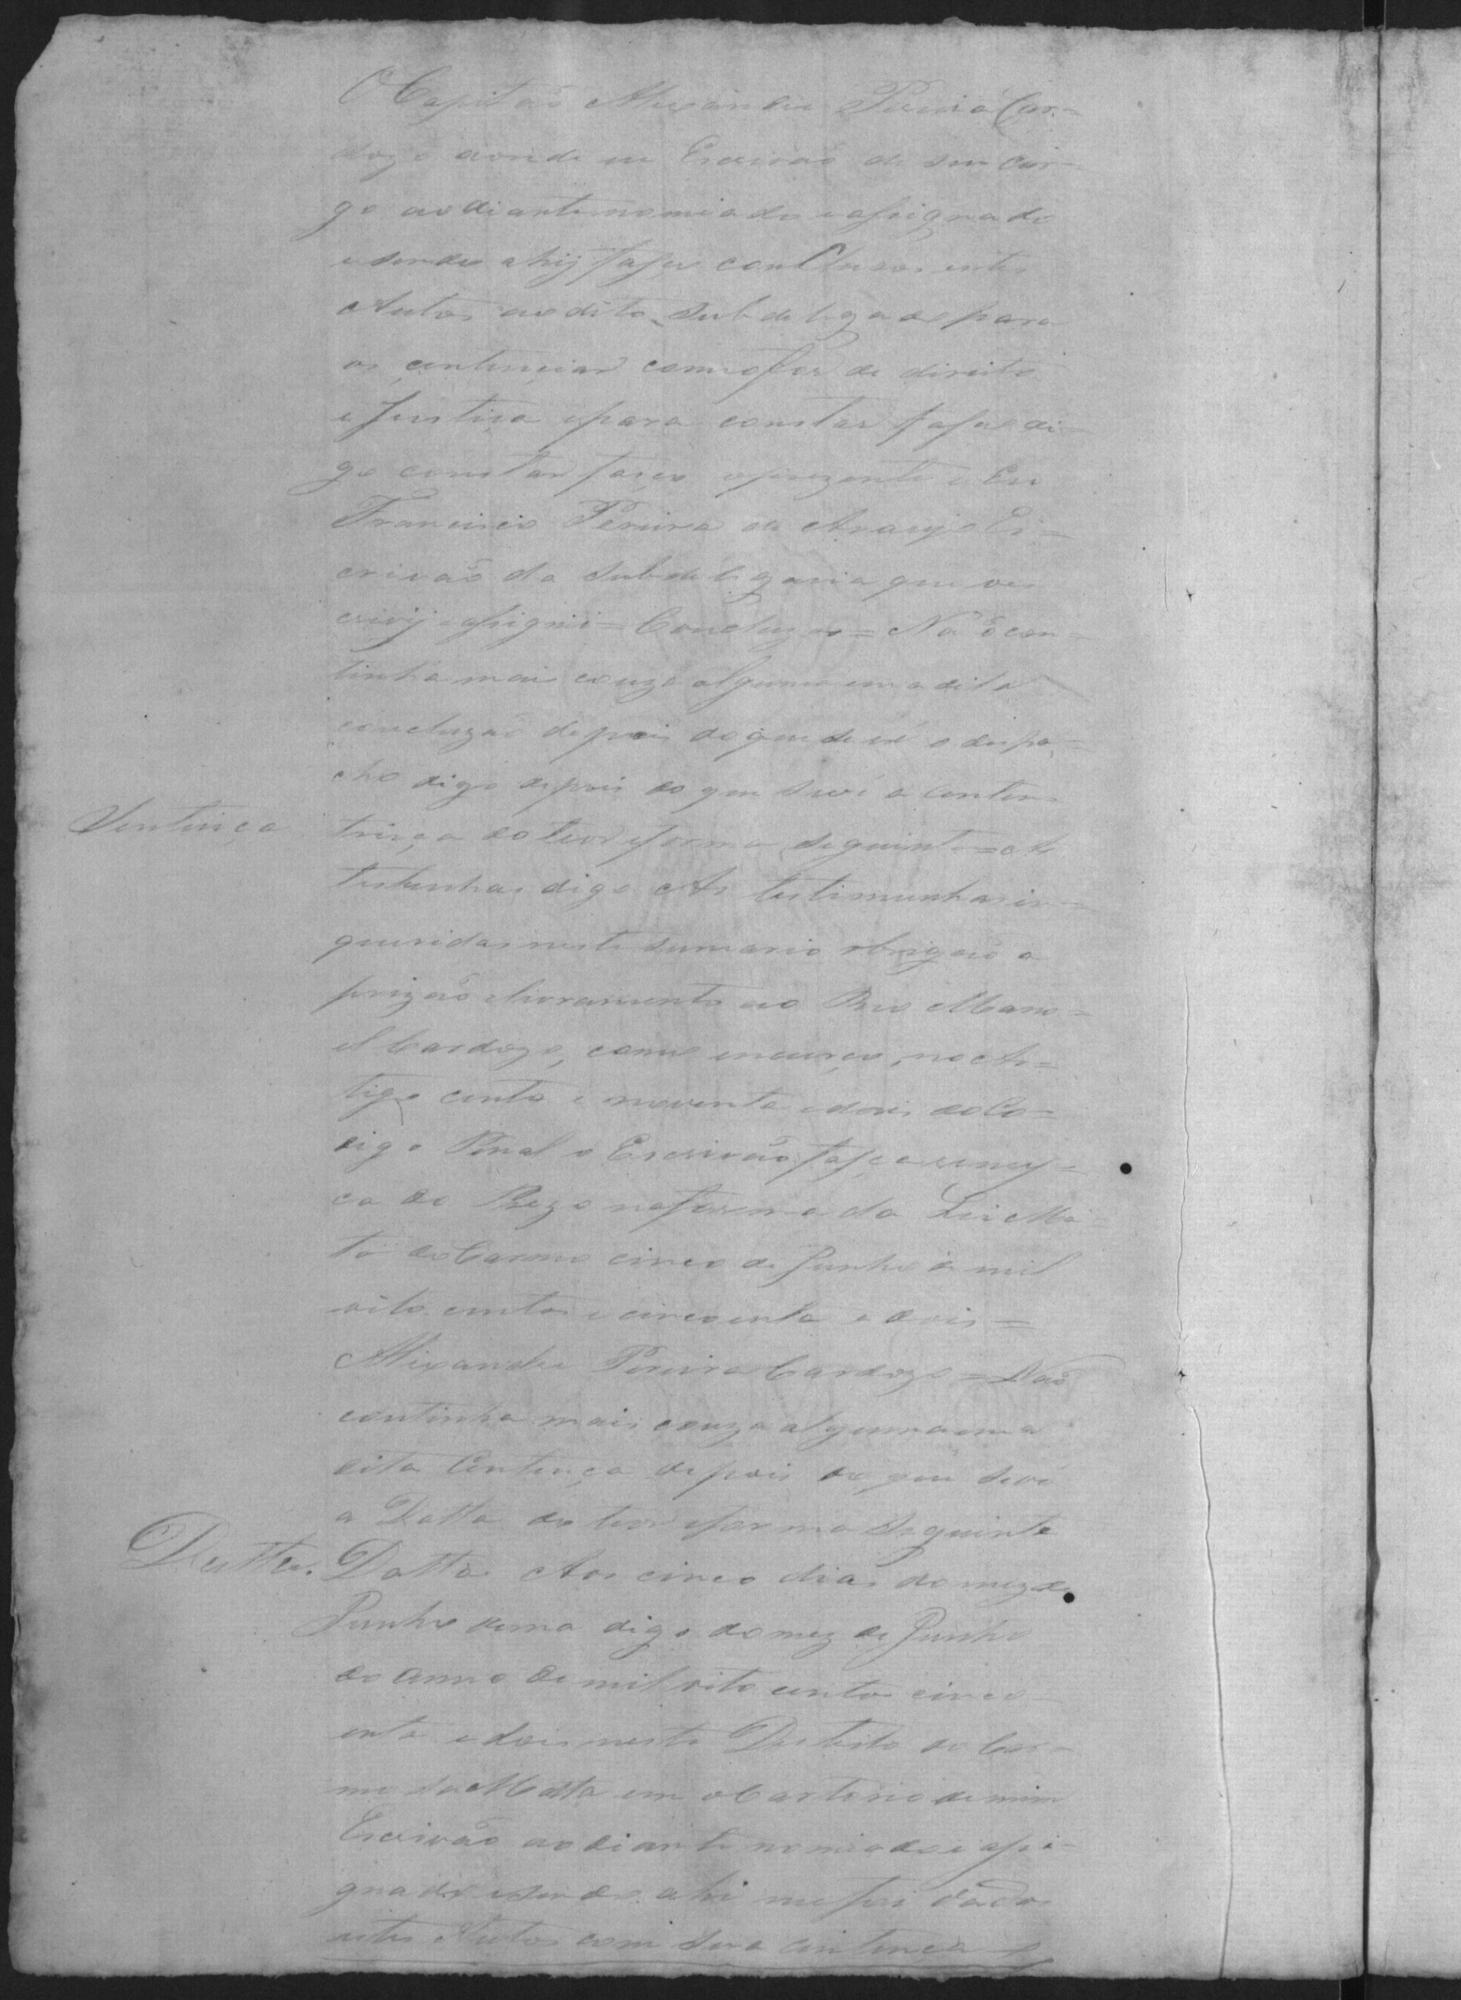 O Capitaõ Alexandre Pereira Car=
dozo aonde eu Escrivaõ de seu car=
go ao diante nomiado e assignado
e sendo ahij faço concluzos estes
Autos ao dito Subdelegado para
os centenciar como for de direito
e Justiça e para constar faço di=
go constar faço o prezente e Eu
Francisco Pereira de Araujo Es=
crivaõ da Subdelegacia que o es
crivij e assignei = Concluzo = Naõ con=
tinha mais couza alguma em a dita
concluzaõ depois do que se vê o despa=
cho digo depois do que se vê a Centen
Sentença
tença do teor e forma seguinte = As
testunhas digo As testimunhas in=
queridas neste sumario obrigaõ a
prizaõ e livramento ao Reo Mano=
el Cardozo, como incurço no Ar=
tigo cento e noventa e dois do Co=
digo Penal o Escrivaõ faça remes=
ca do Prezo na forma da Lei Ma=
ta do Carmo cinco de Junho de mil
oito centos e cincoenta e dois =
Alexandre Pereira Cardozo = Naõ
continha mais couza alguma em a
dita Centença depois do que se vê
a Datta do teor e forma seguinte
Datta.
Datta Aos cinco dias do mez de
Junho digo do mez de Junho
do anno de mil oito centos cinco
enta e dois neste Destrito do Car=
mo da Matta em o Cartorio de mim
Escrivaõ ao diante nomiado e assi=
gnado e sendo ahi me foi dados
estes Autos com sua centença